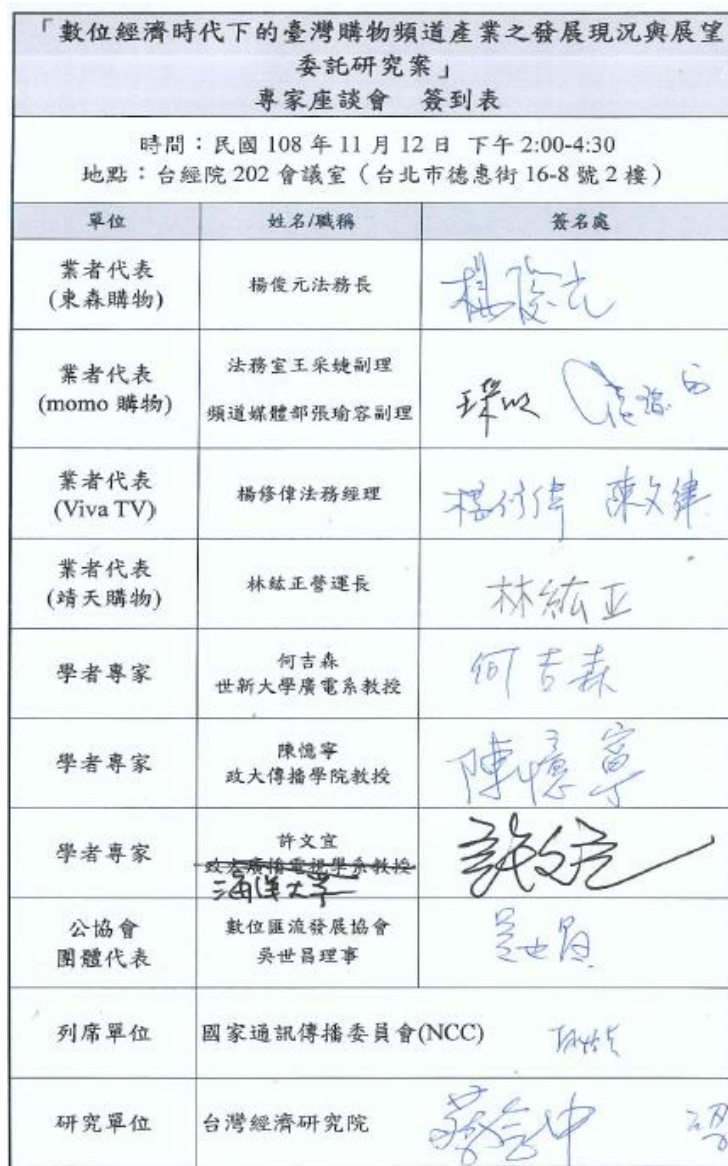 「數位經濟時代下的臺灣購物頻道產業之發展現況與展望
委託研究案」
專家座談會 簽到表
時間：民國 108 年 11 月 12 日 下午 2:00-4:30
地點：台經院 202 會議室（台北市德惠街 16-8 號 2 樓）
單位 姓名/職稱 簽名處
業者代表
(東森購物)
楊俊元法務長
楊俊元
業者代表
(momo 購物)
法務室王采婕副理
頻道媒體部張瑜容副理
業者代表
(Viva TV)
楊修偉法務經理
楊修偉 陳文律
業者代表
(靖天購物)
林紘正營運長
林紘正
學者專家
何吉森
世新大學廣電系教授
何吉森
學者專家
陳憶寧
政大傳播學院教授
陳憶寧
學者專家
許文宜
政大廣播電視學系教授
海洋大學
許文宜
公協會
團體代表
數位匯流發展協會
吳世昌理事
吳世昌
列席單位
國家通訊傳播委員會(NCC)
研究單位
台灣經濟研究院